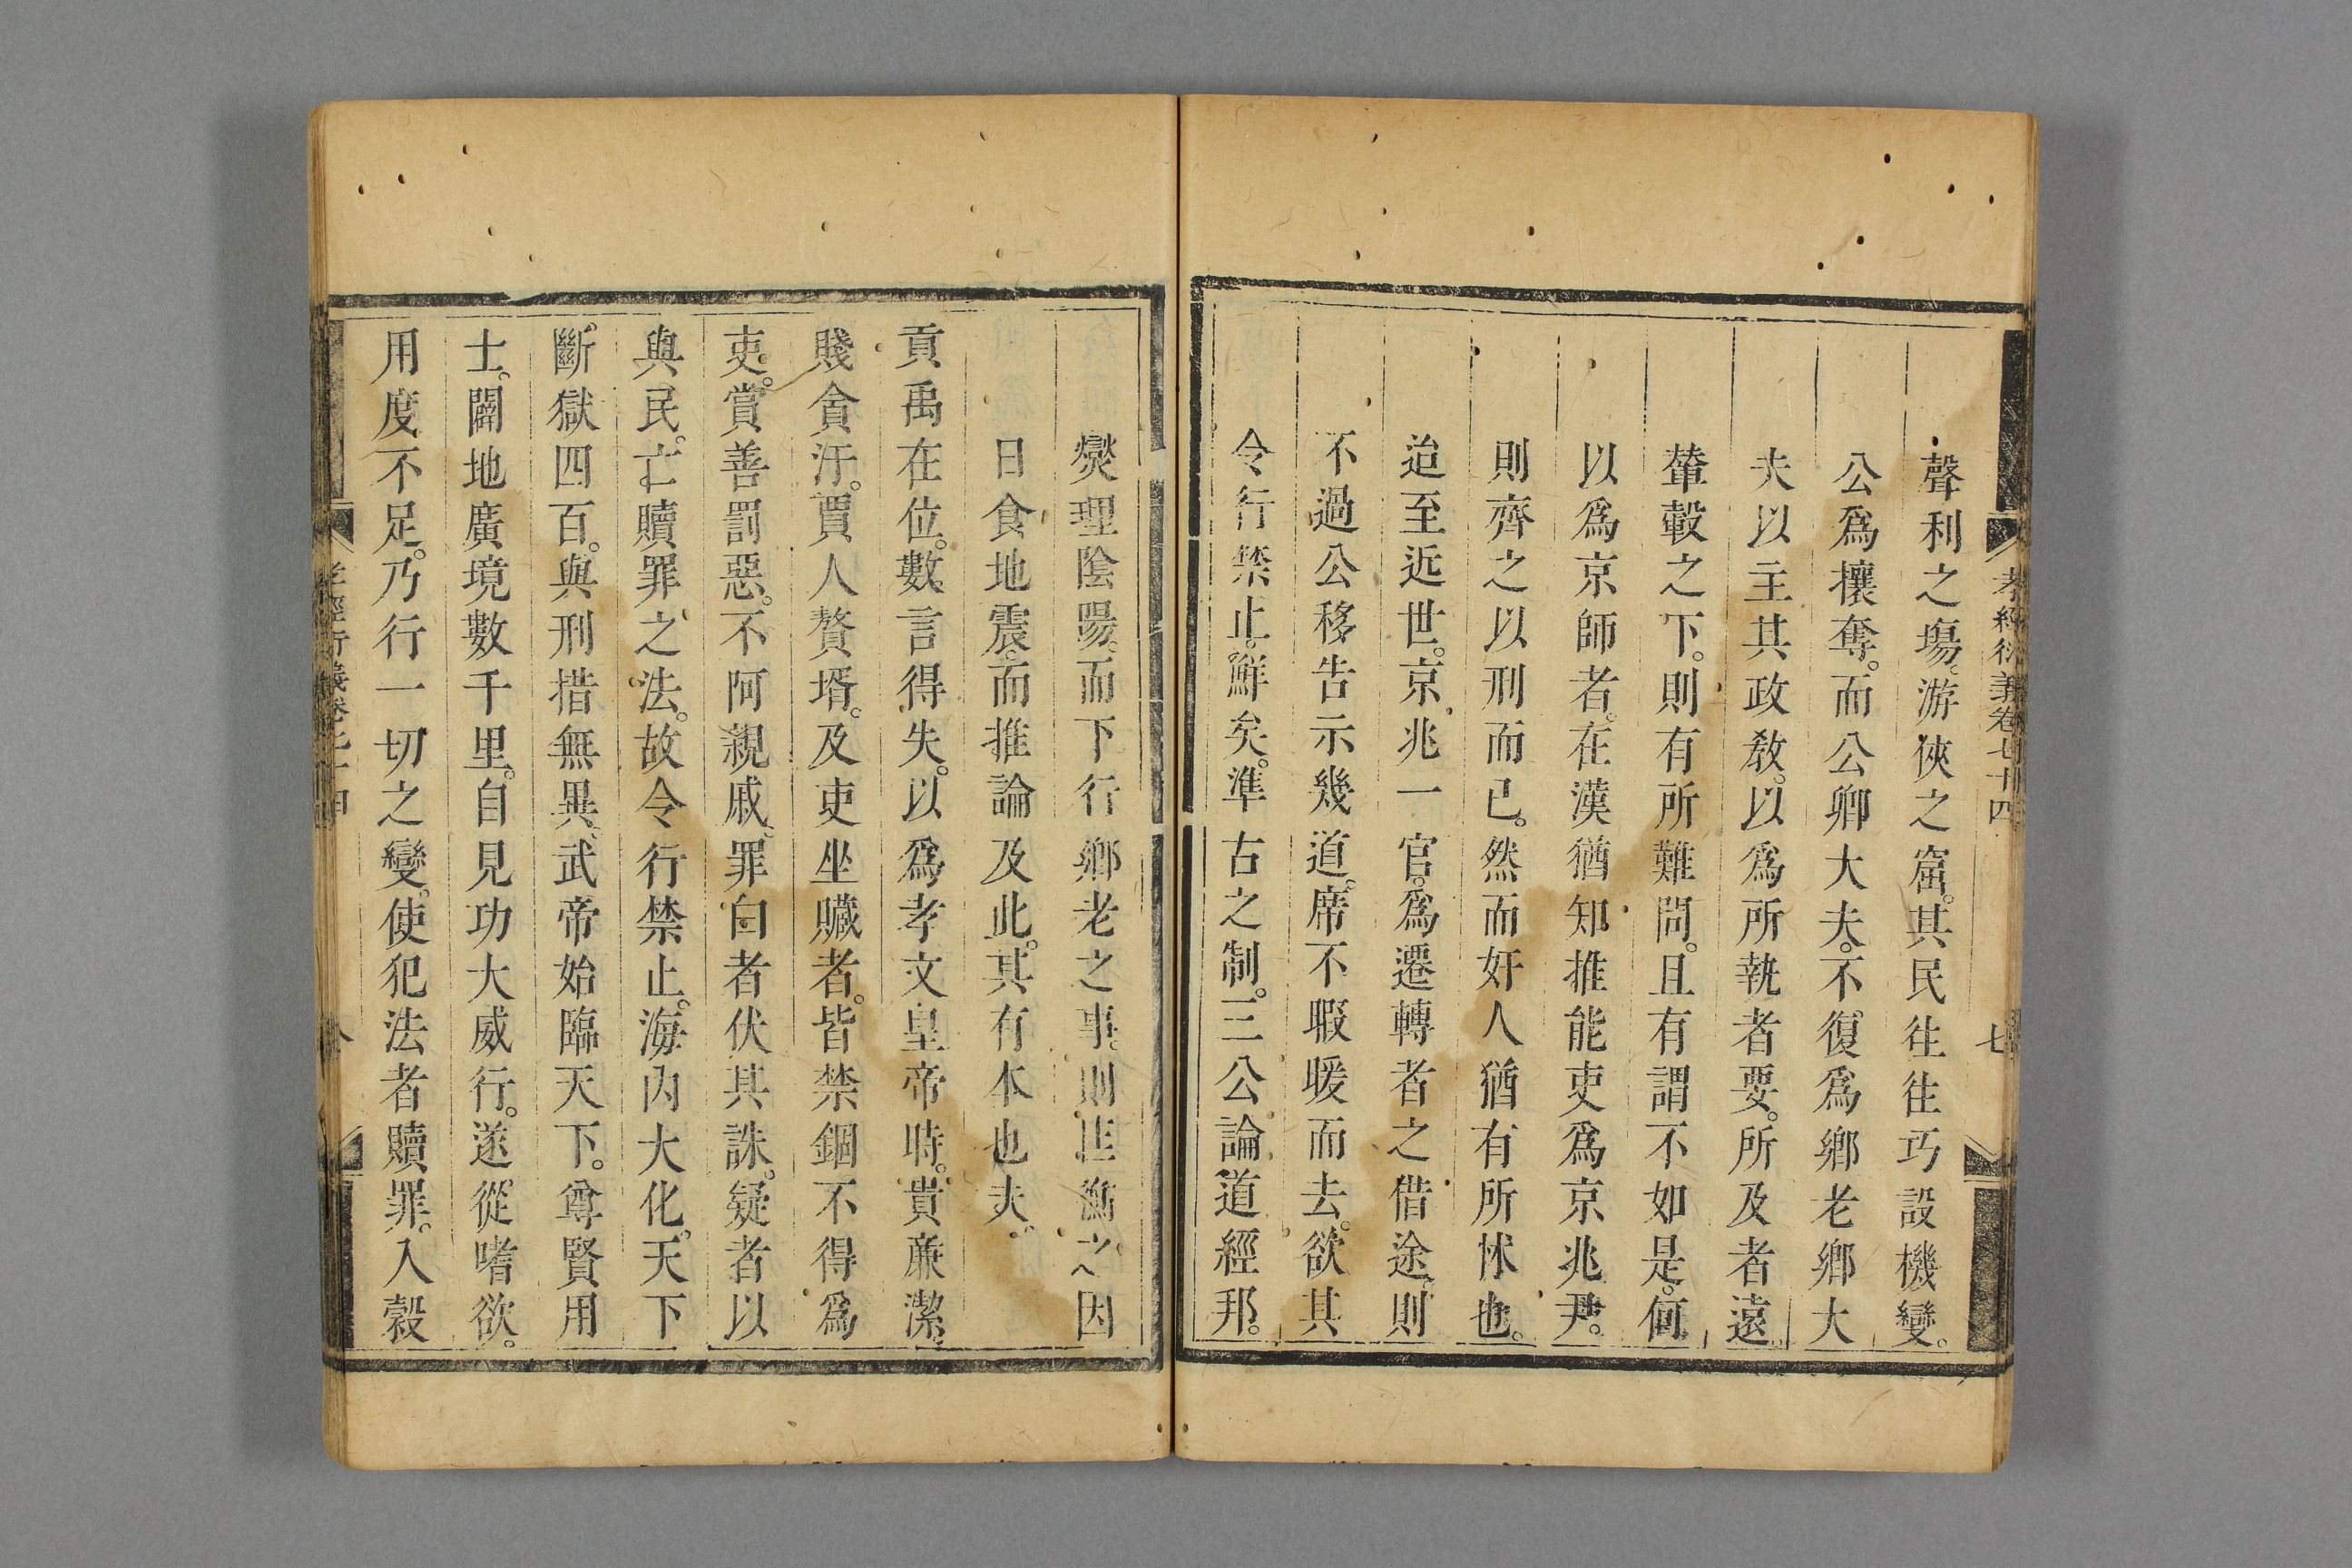 孝經衍義卷七十四
七
聲利之塲。游俠之窟。其民往往巧設機變。
公爲攘奪。而公卿大夫。不復爲鄉老鄉大
夫以主其政教。以爲所執者要。所及者遠。
輦轂之下。則有所難問。且有謂不如是。何
以爲京師者。在漢猶知推能吏爲京兆尹。
則齊之以刑而已。然而奸人猶有所怵也。
迨至近世。京兆一官。爲遷轉者之借途。則
不過公移告示幾道。席不暇暖而去。欲其
令行禁止。鮮矣。準古之制。三公論道經邦。
爕理陰陽。而下行鄉老之事。則匡衡之因
日食地震。而推論及此。其有本也夫。
貢禹在位。數言得失。以爲孝文皇帝時。貴廉潔。
賤貪汙。賈人贅壻。及吏坐贓者。皆禁錮不得爲
吏。賞善罰惡。不阿親戚。罪白者伏其誅。疑者以
與民。亡贖罪之法。故令行禁止。海內大化。天下
斷獄四百。與刑措無異。武帝始臨天下。尊賢用
士。闢地廣境數千里。自見功大威行。遂從嗜欲。
用度不足。乃行一切之變。使犯法者贖罪。入穀
孝經衍義卷七十四
八